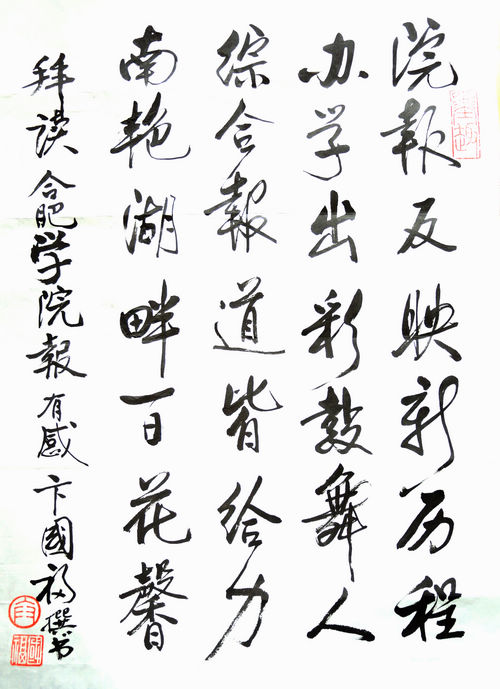 院報反映新历程
办学出彩鼓舞人
综合報道皆给力
南艳湖畔百花馨
拜读合肥学院報有感卞國福撰书